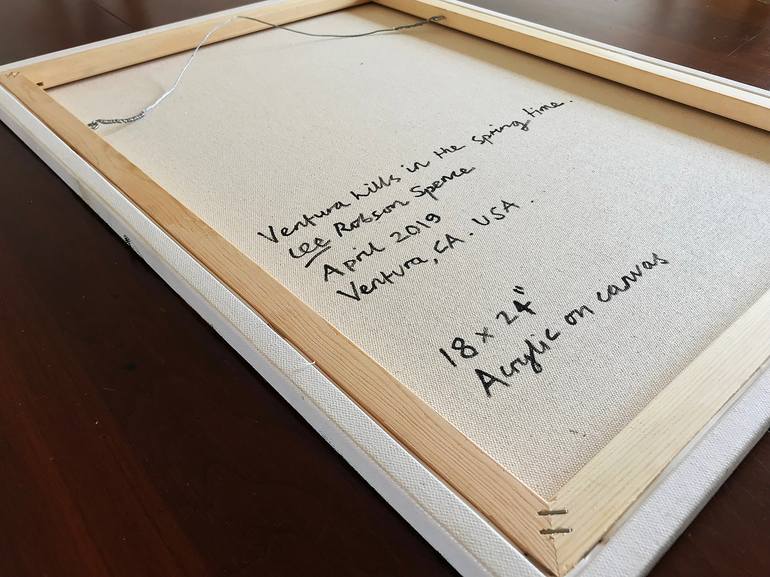 Ventura hills in the spring time.
Lee Robson Spence
April 2019
Ventura, CA. USA.
18 x 24"
Acrylic on canvas